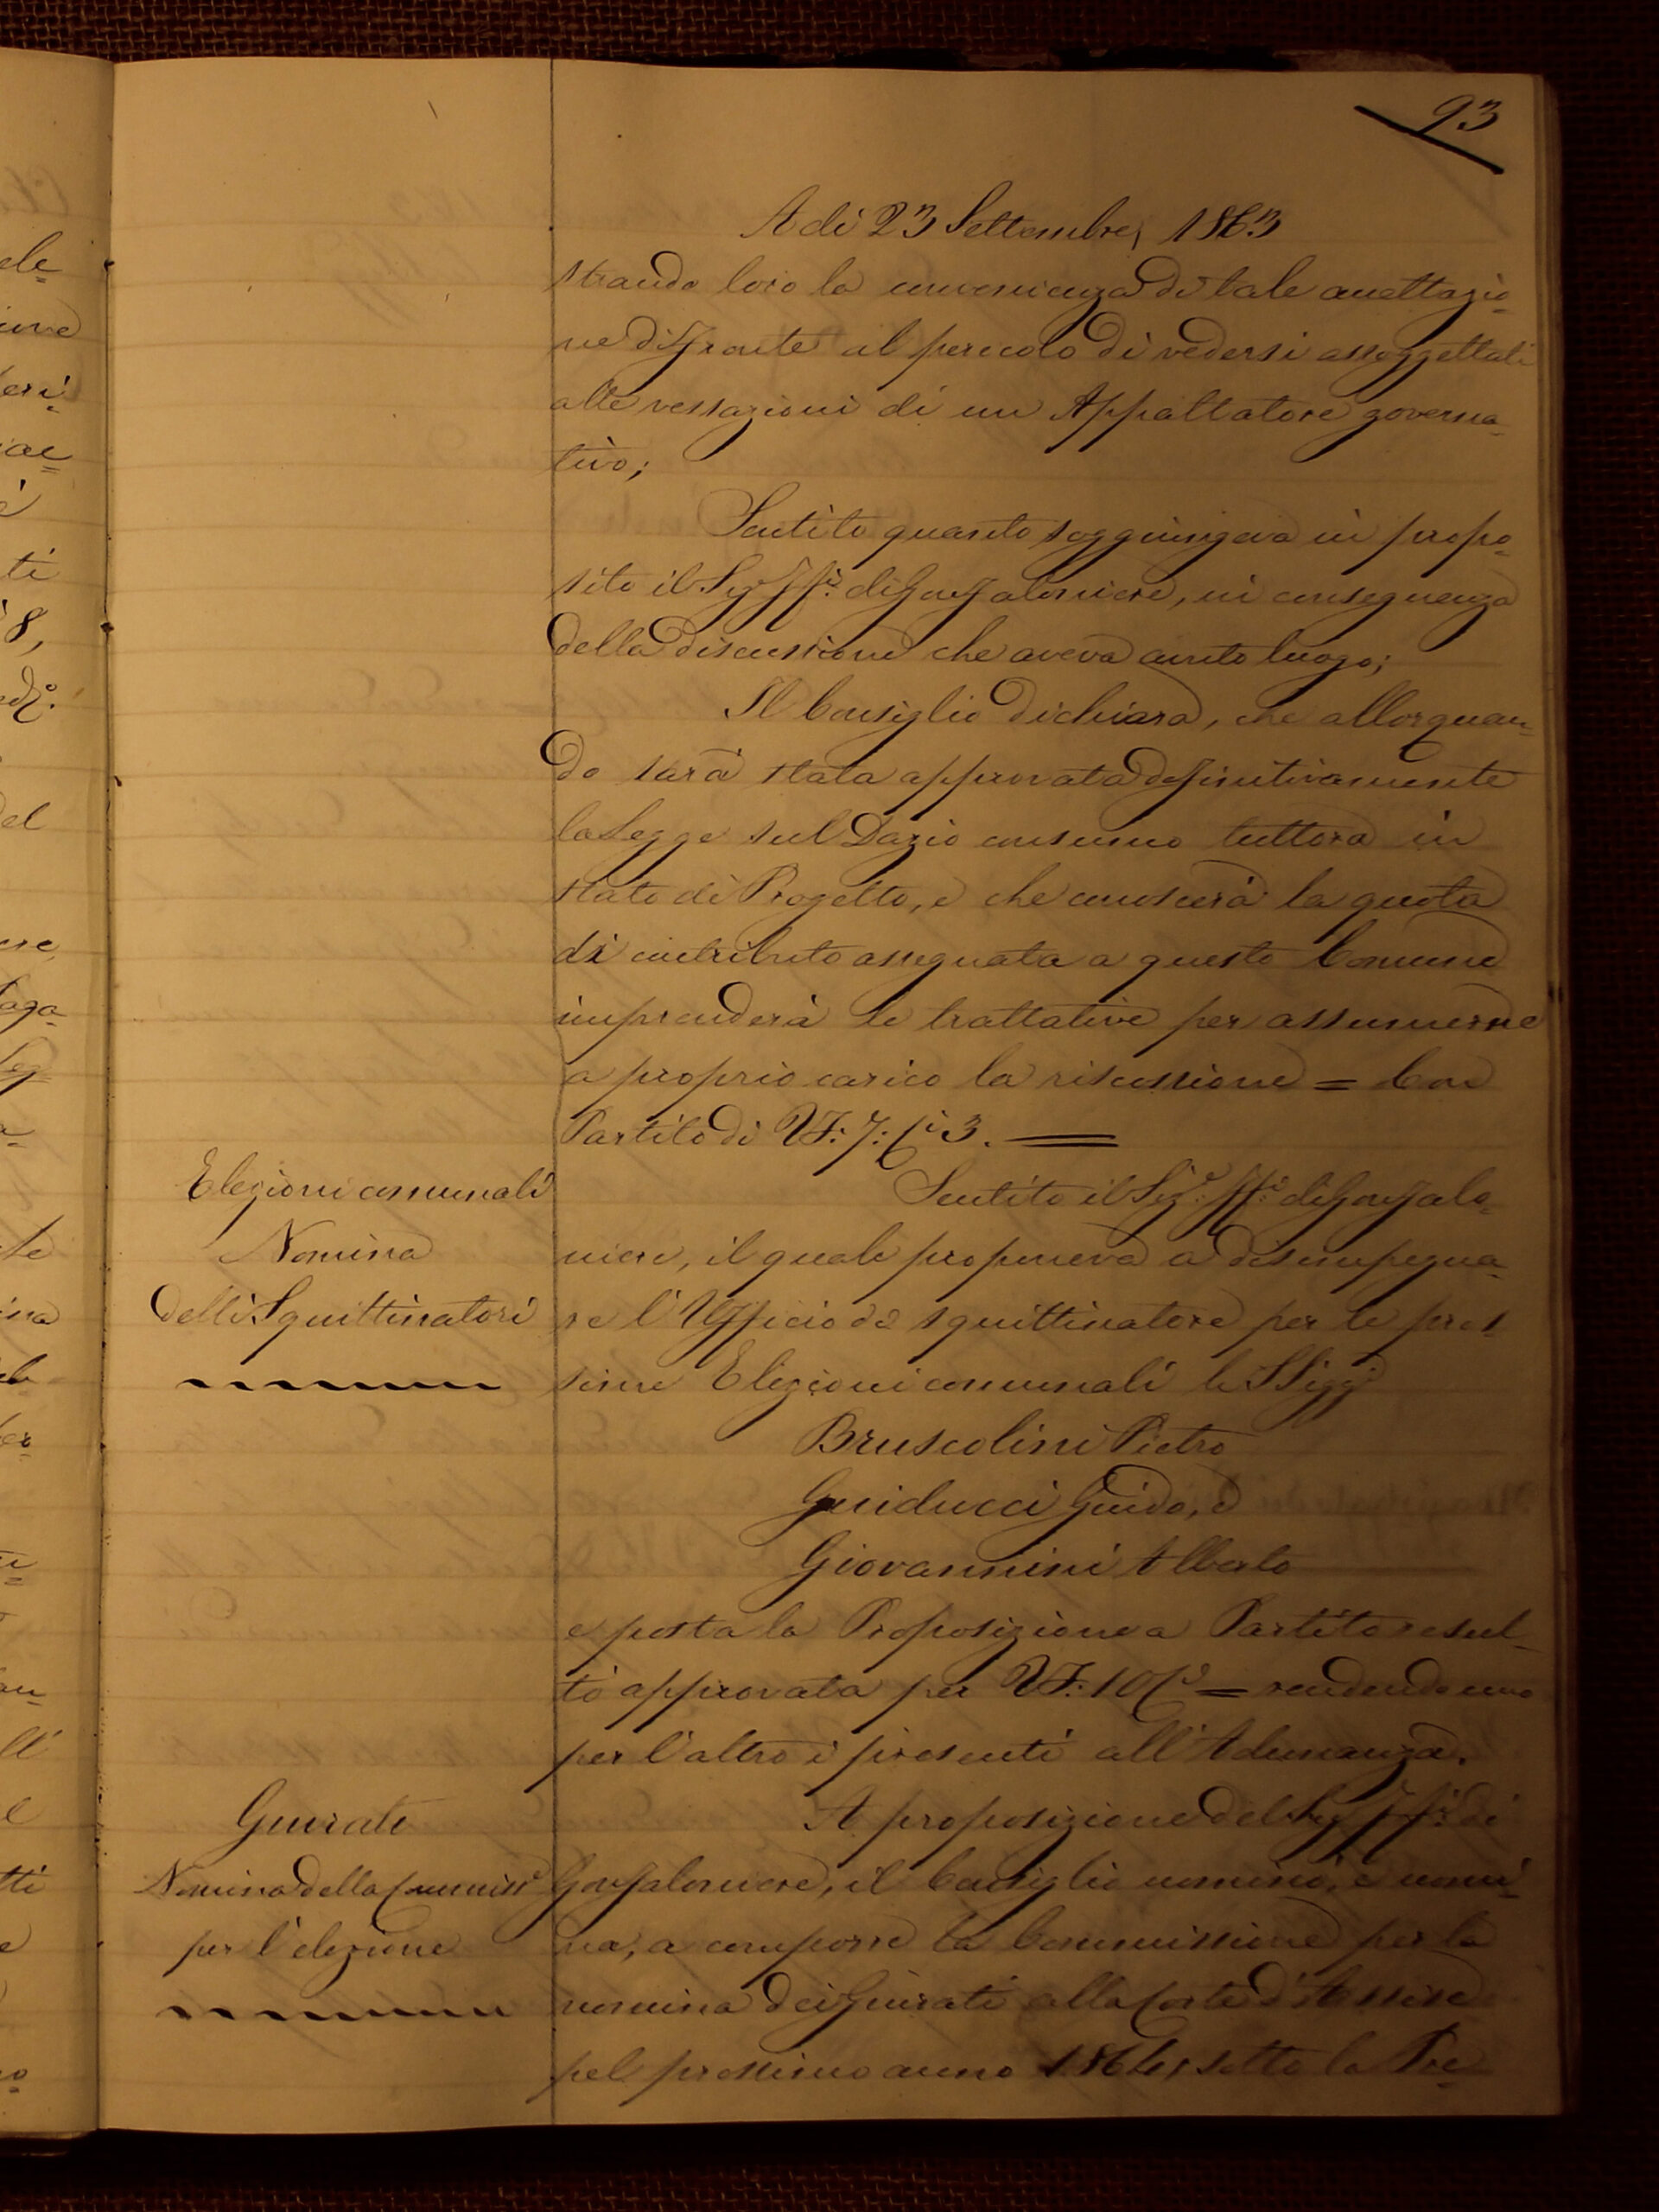 93
Adì 23 Settembre, 1863
strando loro la convenienza di tale accettazio-
ne di fronte al pericolo di vedersi assoggettati
alle vessazioni di un Appaltatore governa-
tivo;
Sentito quanto soggiungeva in propo-
sito il Sigr ff. di Gonfaloniere, in conseguenza
della discussione che aveva avuto luogo;
Il Consiglio dichiara, che allorquan-
do sarà stata approvata definitivamente
la Legge sul Dazio consumo tuttora in
stato di Progetto, e che conoscerà la quota
di contributo assegnata a questo Comune
imprenderà le trattative per assumerne
a proprio carico la riscossione = Con
Partito di VF: 7: Ci 3.
Elezioni comunali
Nomina
delli Squittinatori
Sentito il Sigr: ff: di Gonfalo-
niere, il quale proponeva a disimpegna-
re l'Ufficio di squittinatore per le pros-
sime Elezioni comunali li SSigg
Bruscolini Pietro
Guiducci Guido, e
Giovannini Alberto
e posta la Proposizione a Partito resul-
tò approvata per VF: 10 Ci = rendendo uno
per l'altro i presenti all'Adunanza.
Giurati
Nomina della Commisse
per l'elezione
A proposizione del Sigr ff: di
Gonfaloniere, il Consiglio nominò, e nomi-
na, a comporre la Commissione per la
nomina dei Giurati alla Corte d'Assise
pel prossimo anno 1864, sotto la Pre-